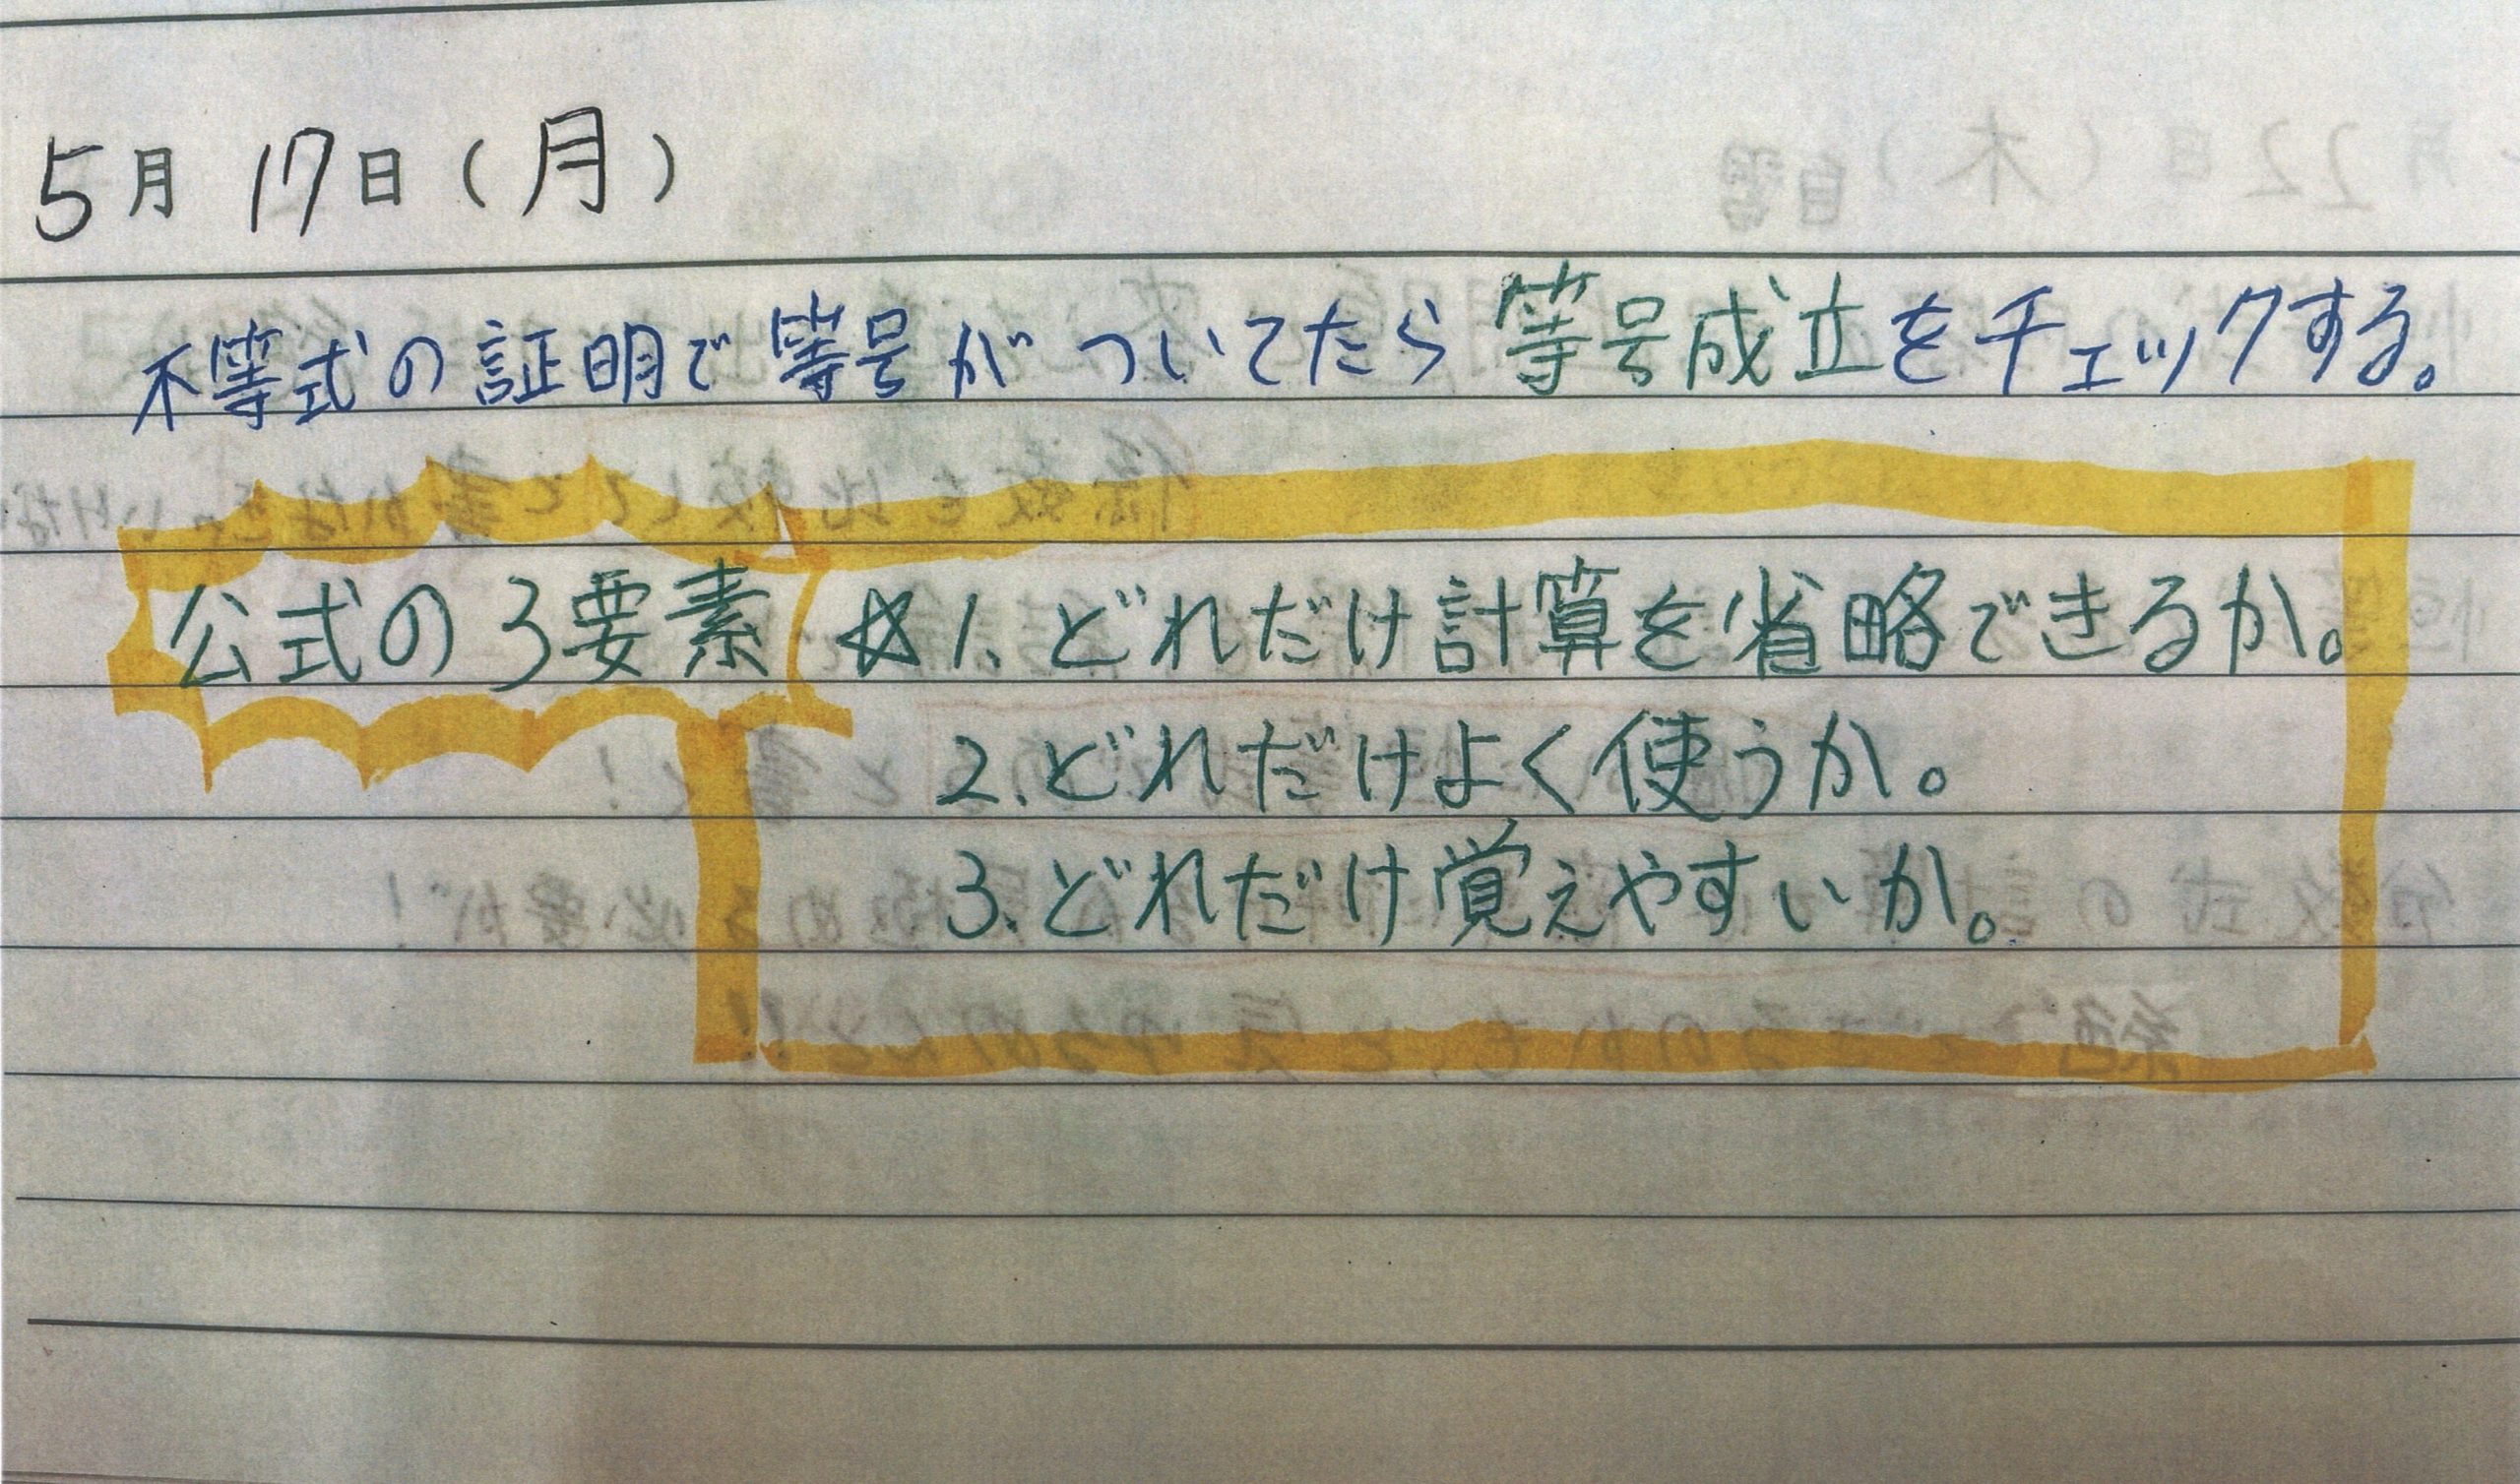 5月 17日(月)
不等式の証明で等号がついてたら等号成立をチェックする。
公式の3要素 ☆1. どれだけ計算を省略できるか。
2. どれだけよく使うか。
3. どれだけ覚えやすいか。